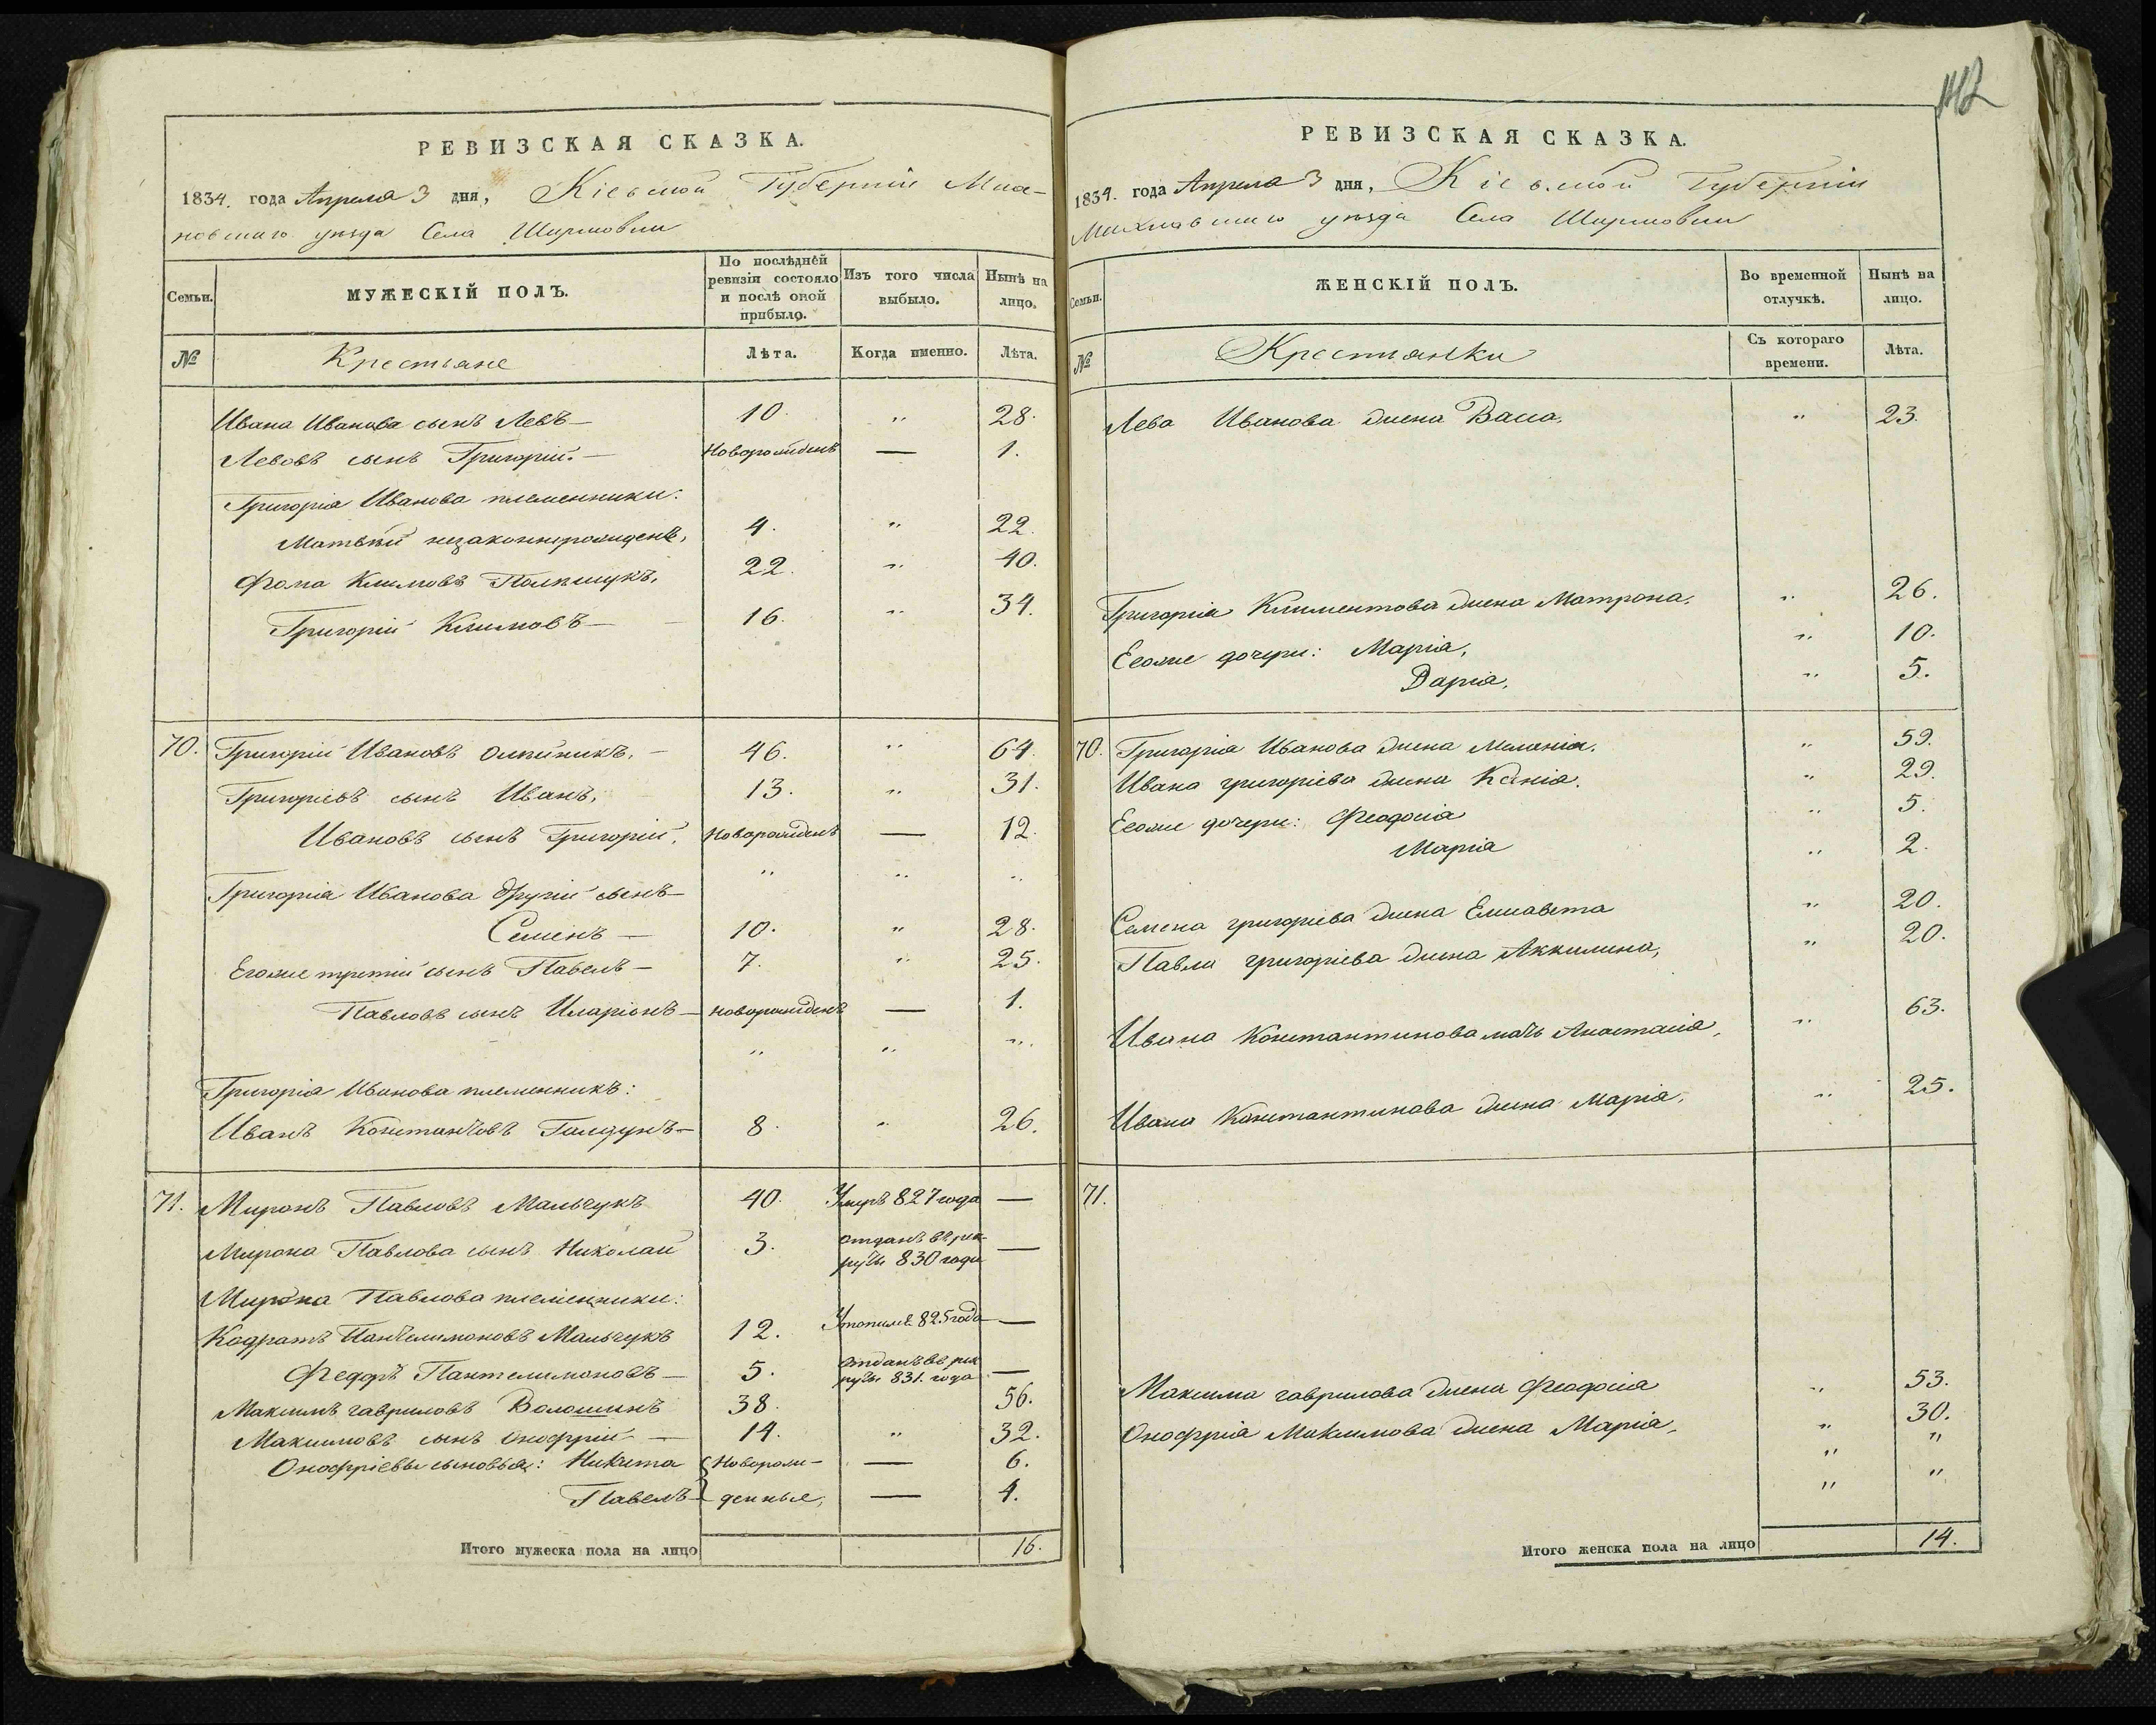 РЕВИЗСКАЯ СКАЗКА.
1834. года Апреля 3 дня, Кіевской Губерніи Миа-
новскаго уѣзда Села
Семьи.
МУЖЕСКІЙ ПОЛЪ.
По послѣдней ревизіи состояло и послѣ оной прибыло.
Изъ того числа выбыло.
Нынѣ на лицо.
№
Крестьяне
Лѣта.
Когда именно.
Лѣта.
Ивана Иванова сынъ Левъ— 10. " 28.
Левовъ сынъ Григорій.— Новорожденъ — 1.
Григорія Иванова племенники:
Матвѣй незаконнорожденъ, 4. " 22.
Фома Климовъ Полищукъ, 22. " 40.
Григорій Климовъ— 16. " 34.
70. Григорій Ивановъ Олѣйникъ, — 46. " 64.
Григоріевъ сынъ Иванъ, 13. " 31.
Ивановъ сынъ Григорій, Новорожденъ — 12.
Григорія Иванова другій сынъ— " " "
Семенъ — 10. " 28.
Егоже третій сынъ Павелъ— 7. " 25.
Павловъ сынъ Иларіонъ— новорожденъ — 1.
" " "
Григорія Иванова племенникъ:
Иванъ 8. " 26.
71. Миронъ Павловъ Мальчукъ 40. Умръ 827 года —
Мирона Павлова сынъ Николай 3. отданъ въ рек-
руты 830 года —
Мирона Павлова племенники:
Кодратъ Пантелимоновъ Мальчукъ 12. 825 года —
Федоръ Пантелимоновъ— 5. отданъ въ рек
руты 831. года —
Максимъ гавриловъ Волошинъ 38. 56.
Максимовъ сынъ Онофрій — 14. " 32.
Онофріевы сыновья: Никита Новорож- — 6.
Павелъ денные, — 4.
Итого мужеска пола на лицо 16.
РЕВИЗСКАЯ СКАЗКА.
1834. года Апреля 3 дня, Кіевской Губерніи
уѣзда Села
Семьи.
ЖЕНСКІЙ ПОЛЪ.
Во временной отлучкѣ.
Нынѣ на лицо.
№
Крестьянки
Съ котораго времени.
Лѣта.
Лева Иванова жена " 23.
Григорія Климентова жена Матрона, " 26.
Егоже дочери: Марія, " 10.
Дарія, " 5.
70. Григорія Иванова жена Меланія, " 59.
Ивана григоріева жена Ксенія. " 29.
Егоже дочери: Феодосія " 5.
Марія " 2.
Семена григоріева жена Елисавета " 20.
Павла григоріева жена Аккилина, " 20.
Ивана Константинова мать Анастасія, " 63.
Ивана Константинова жена Марія, " 25.
71.
Максима гаврилова жена Феодосія " 53.
Онофрія Максимова жена Марія, " 30.
" "
" "
Итого женска пола на лицо 14.